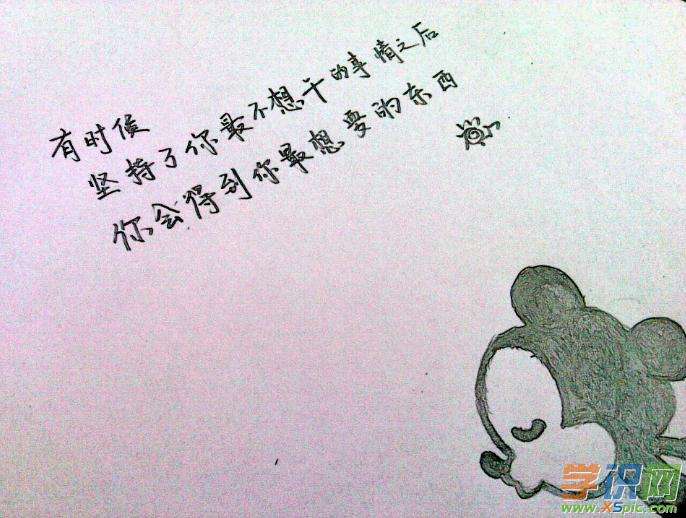 有时候
坚持了你最不想干的事情之后
你会得到你最想要的东西
学识网
www.XSpic.com